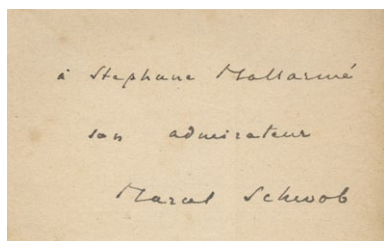 à Stéphane Mallarmé
son admirateur
Marcel Schwob